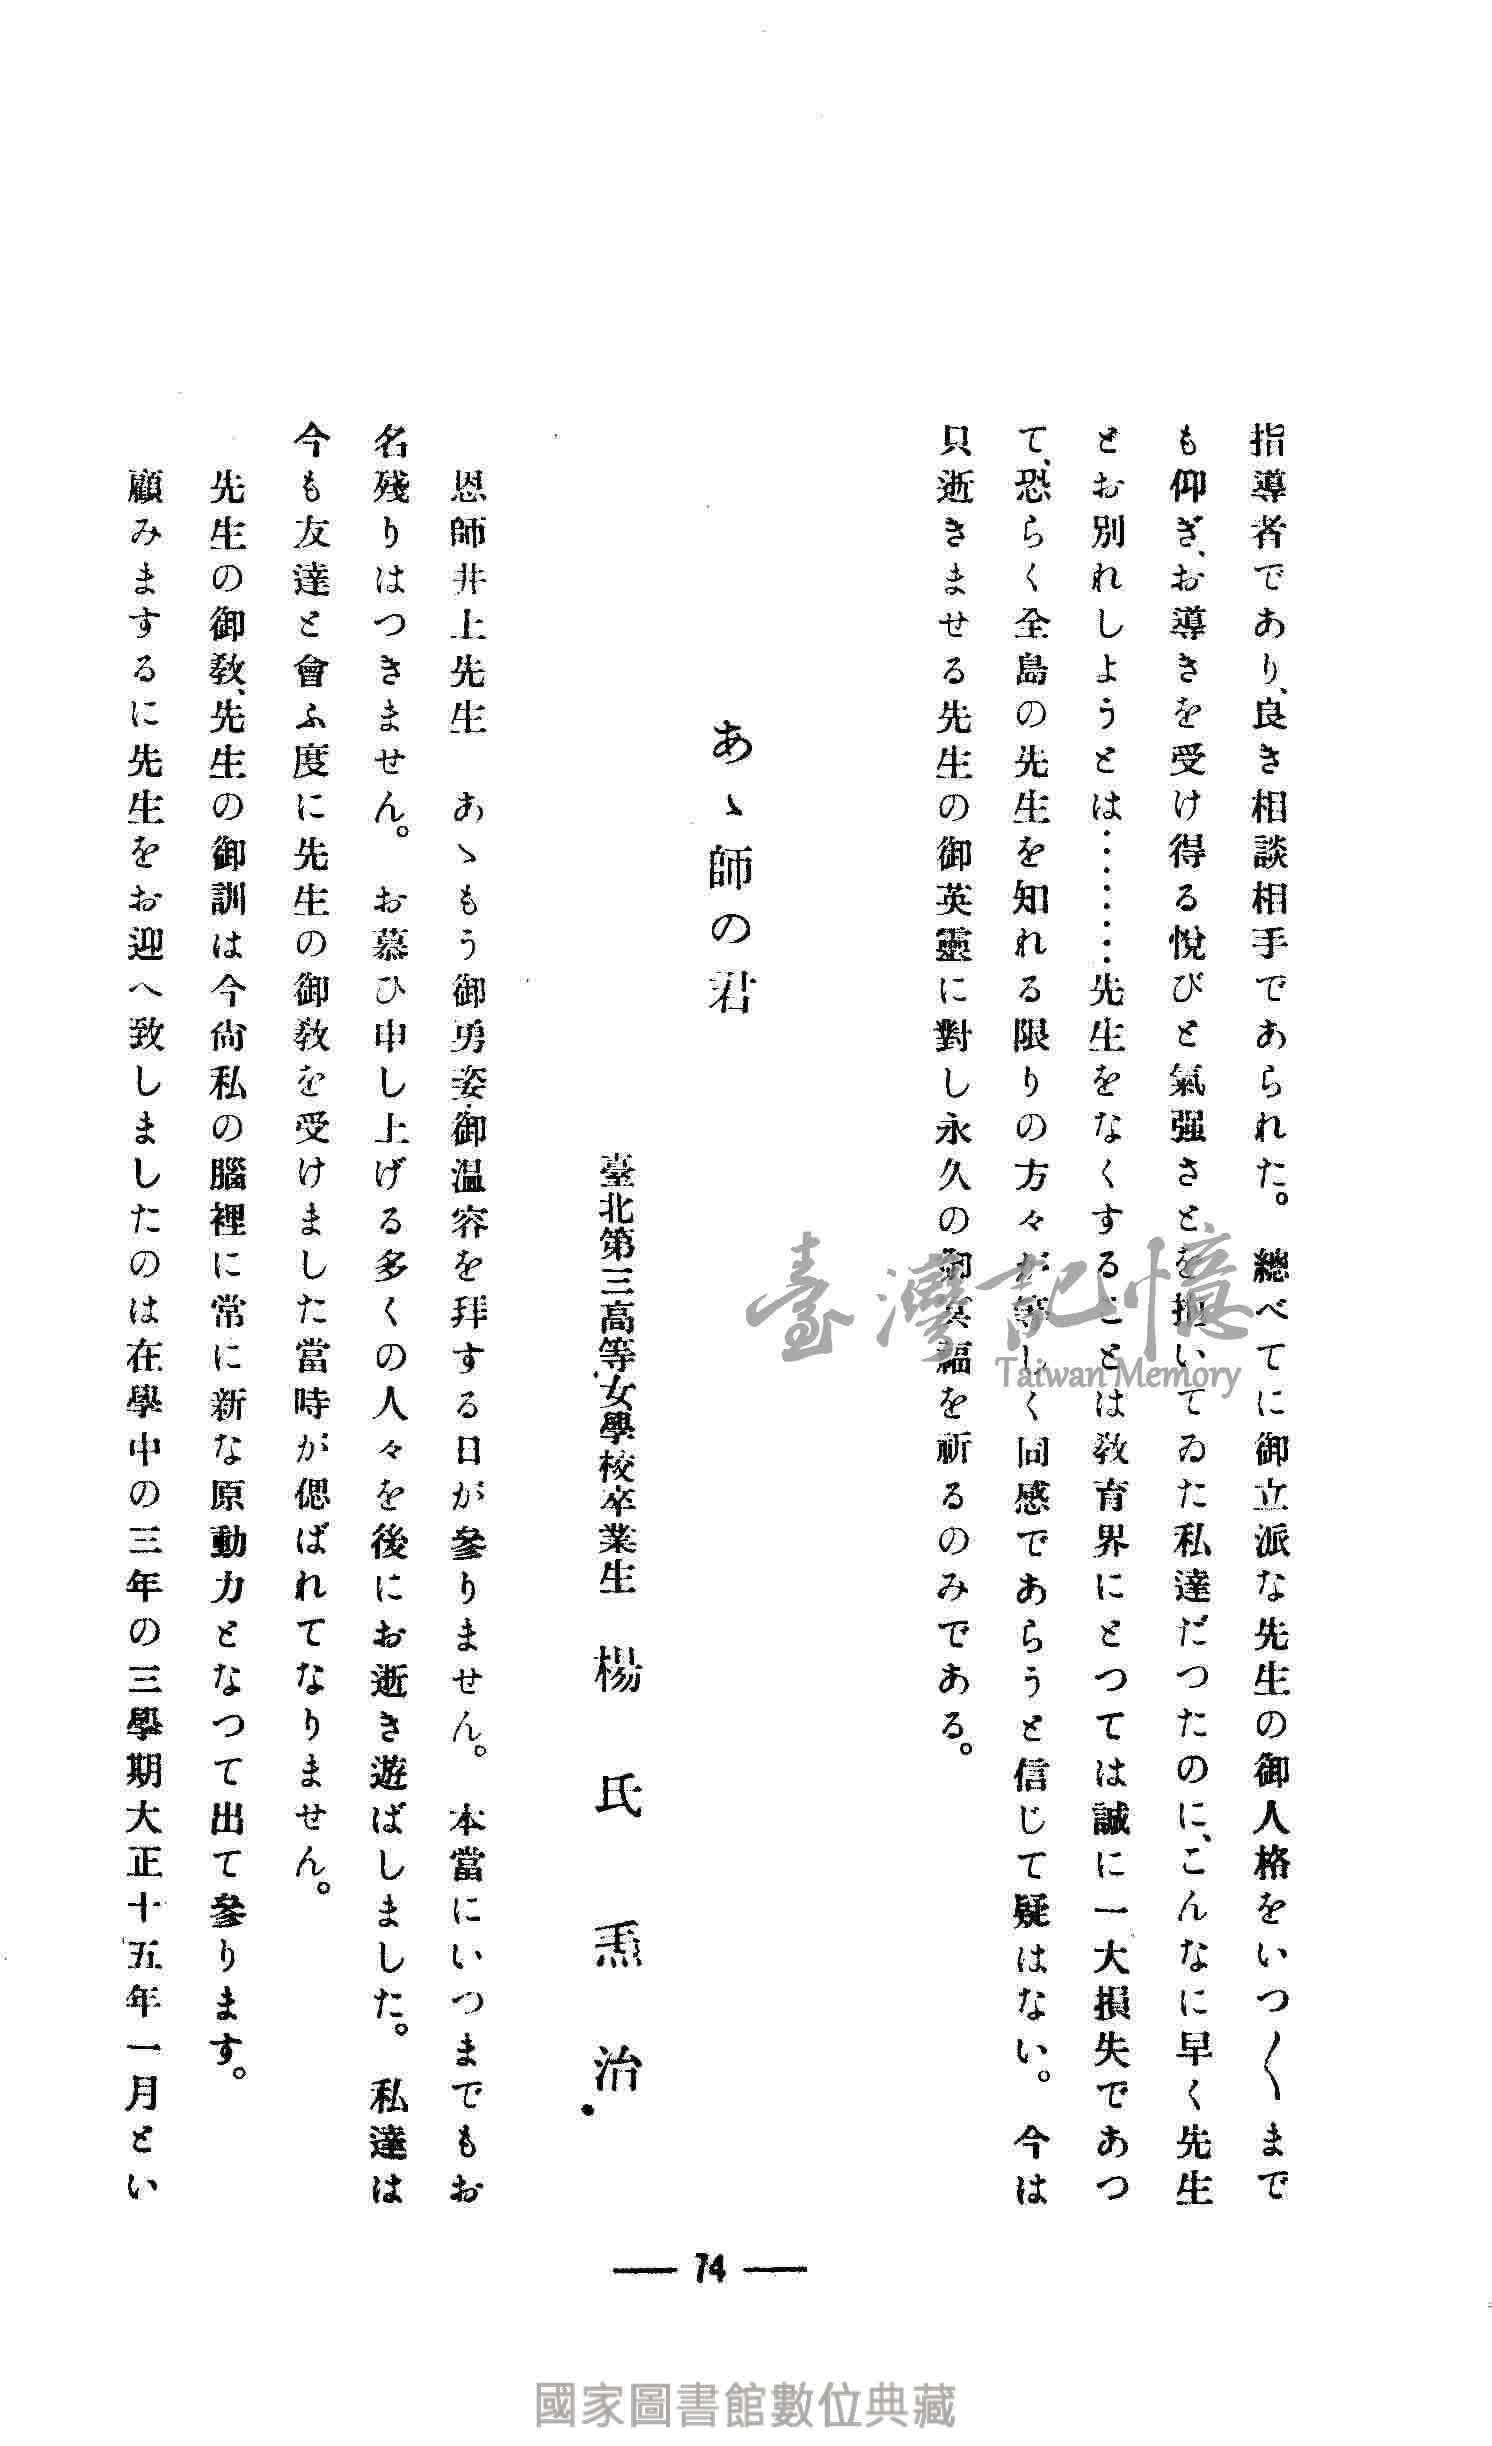 指導者であり、良き相談相手であられた。總べてに御立派な先生の御人格をいつ〱まで
も仰ぎ、お導きを受け得る悦びと氣强さとを抱いてゐた私達だつたのに、こんなに早く先生
とお別れしようとは‥‥‥‥先生をなくすることは敎育界にとつては誠に一大損失であつ
て、恐らく全島の先生を知れる限りの方々が等しく同感であらうと信じて疑はない。今は
只逝きませる先生の御英靈に對し永久の御冥福を祈るのみである。
あゝ師の君
臺北第三高等女學校卒業生 楊氏熏治
恩師井上先生 あゝもう御勇姿・御温容を拜する日が參りません。本當にいつまでもお
名殘りはつきません。お慕ひ申し上げる多くの人々を後にお逝き遊ばしました。私達は
今も友達と會ふ度に先生の御敎を受けました當時が偲ばれてなりません。
先生の御敎、先生の御訓は今尙私の腦裡に常に新な原動力となつて出て參ります。
顧みまするに先生をお迎へ致しましたのは在學中の三年の三學期大正十五年一月とい
— 74 —
臺灣記憶
Taiwan Memory
國家圖書館數位典藏